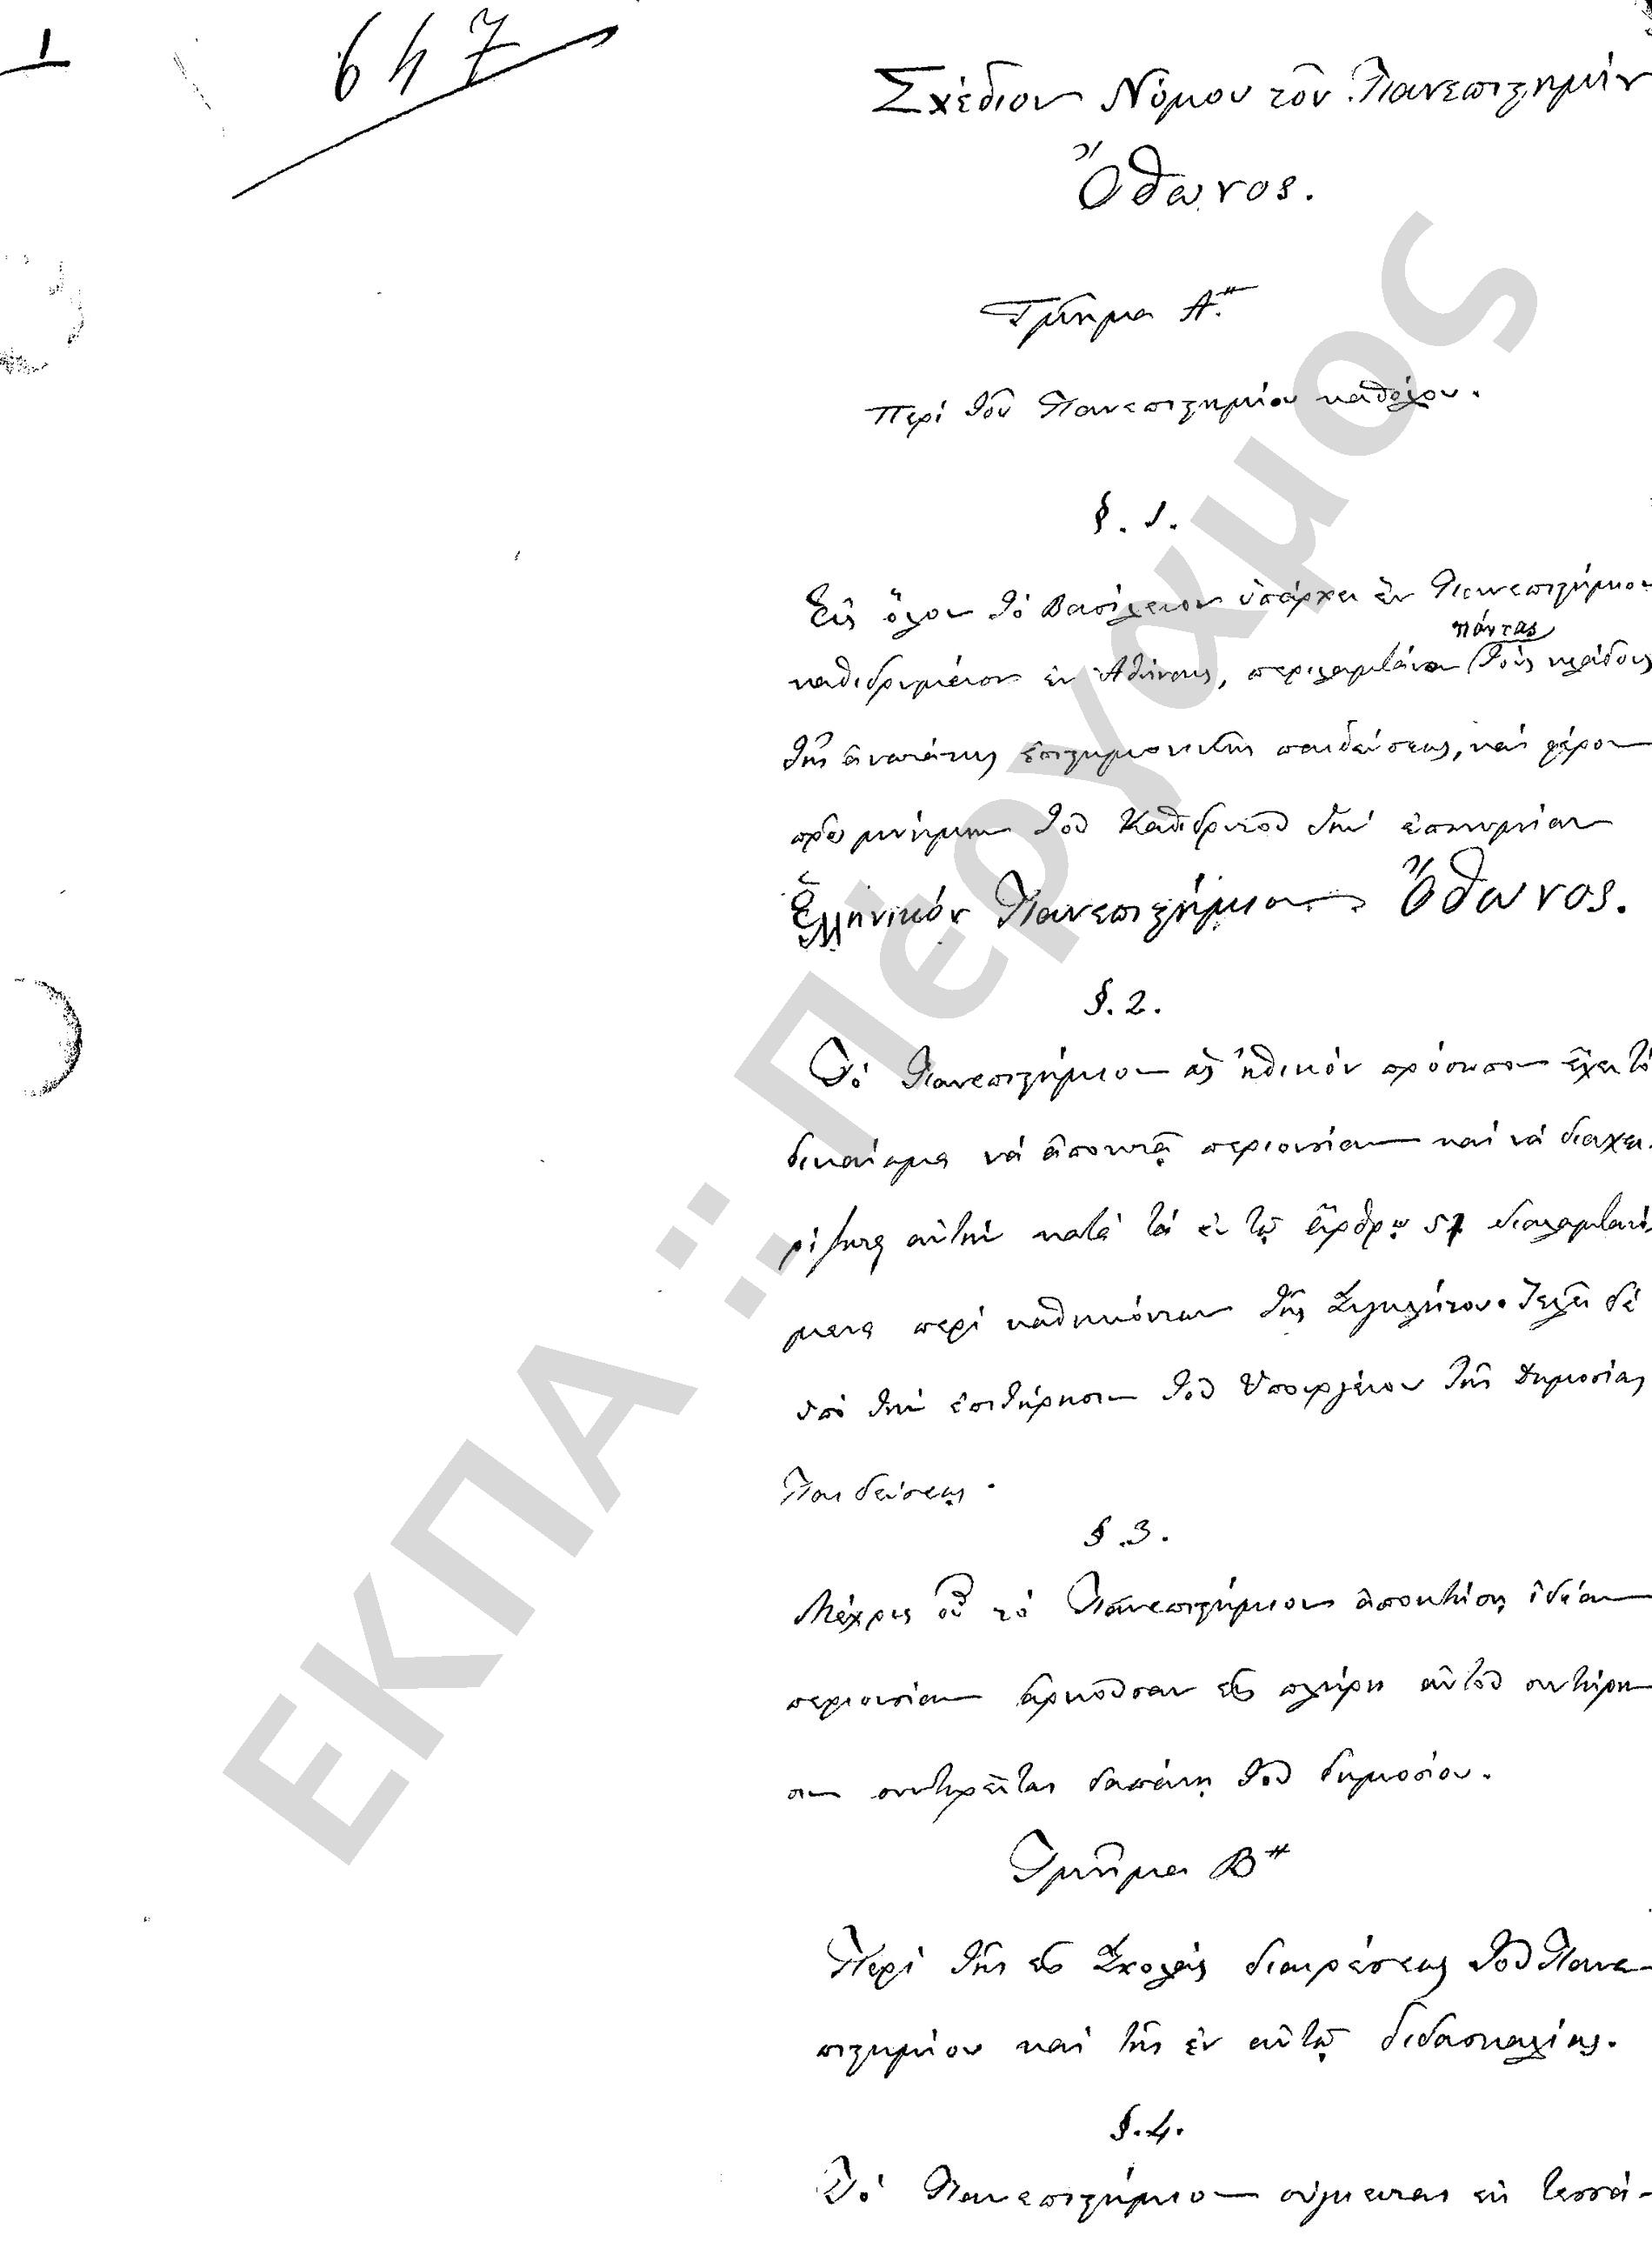 1
647
Σχέδιον Νόμου τοῦ Πανεπιστημίου
Ὄθωνος.
Τμῆμα Α.
Περὶ τοῦ Πανεπιστημίου καθόλου.
§. 1.
Εἰς ὅλον τὸ Βασίλειον ὑπάρχει ἓν Πανεπιστήμιον
πάντας
καθιδρυμένον ἐν Ἀθήναις, περιλαμβάνον τοὺς κλάδους
τῆς ἀνωτάτης ἐπιστημονικῆς παιδεύσεως, καὶ φέρον
πρὸς μνήμην τοῦ Καθιδρυτοῦ τὴν ἐπωνυμίαν
Ἑλληνικὸν Πανεπιστήμιον Ὄθωνος.
§. 2.
Τὸ Πανεπιστήμιον ὡς ἠθικὸν πρόσωπον ἔχει τὸ
δικαίωμα νὰ ἀποκτᾷ περιουσίαν καὶ νὰ διαχει-
ρίζηται αὐτὴν κατὰ τὰ ἐν τῷ ἄρθρῳ 57 διαλαμβανό
μενα περὶ καθηκόντων τῆς Συγκλήτου. Τελεῖ δὲ
ὑπὸ τὴν ἐπιτήρησιν τοῦ Ὑπουργείου τῆς Δημοσίας
Παιδεύσεως.
§. 3.
Μέχρις οὗ τὸ Πανεπιστήμιον ἀποκτήσῃ ἰδίαν
περιουσίαν ἀρκοῦσαν εἰς πλήρη αὐτοῦ συντήρη
σιν συντηρεῖται δαπάνῃ τοῦ δημοσίου.
Τμῆμα Β
Περὶ τῆς εἰς Σχολὰς διαιρέσεως τοῦ Πανε-
πιστημίου καὶ τῆς ἐν αὐτῷ διδασκαλίας.
§. 4.
Τὸ Πανεπιστήμιον σύγκειται ἐκ τεσσά-
ΕΚΠΑ :: Πέργαμος